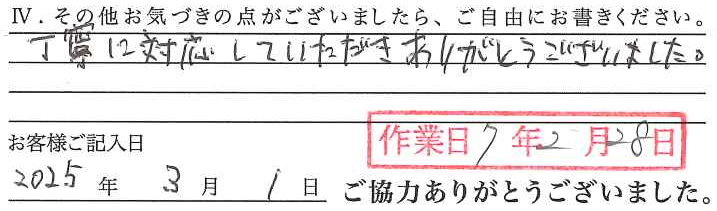 Ⅳ．その他お気づきの点がございましたら、ご自由にお書きください。
丁寧に対応していただきありがとうございました。
お客様ご記入日
作業日7年2月28日
2025年3月1日
ご協力ありがとうございました。